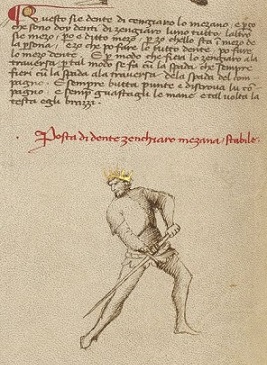 Questo sie dente di zengiaro lo mezano, e p ço
che sono doy denti di zengiaro luno tutto, l altro
sie mezo, po e ditto mezo, p zo chello sta i mezo de
la psona, e zo che po fare lo sutto dente, po fare
lo mezo dente. E p modo che fieri lo zengiaro ala
traversa p tal modo se fa cu la spada, che sempre
fieri cu la spada ala traversa dela spada del com-
pagno. E sempre butta punte e discrova lu cō-
pagno, e semp guastagli le mane e tal volta la
testa egli brazzi.
Posta di dente zenchiaro mezana stabile.